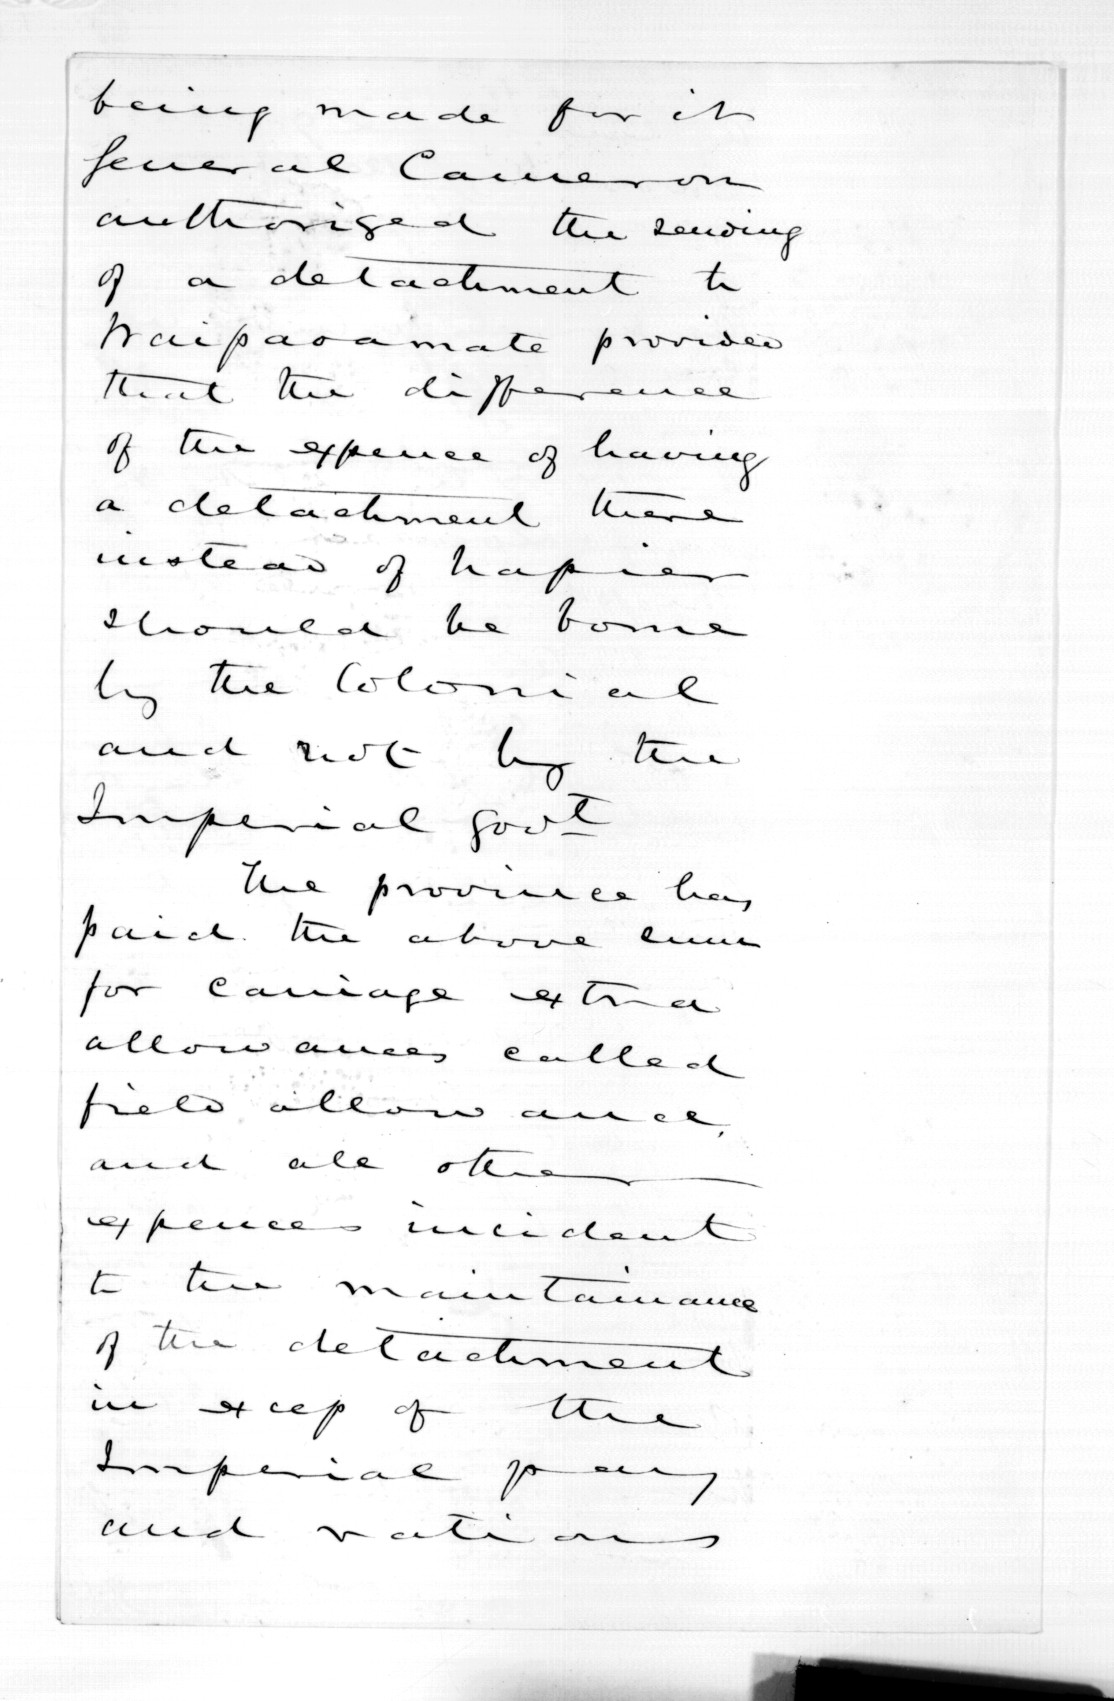 being made for it
General Cameron
authorized the sending
of a detachment to
Waipaoamate provided
that the difference
of the expence of having
a detachment there
instead of Napier
should be borne
by the Colonial
and not by the
Imperial Govt
The province has
paid the above sum
for carriage extra
allowances called
field allowance,
and all other
expences incident
to the maintainance
of the detachment
in excep of the
Imperial pay
and rations